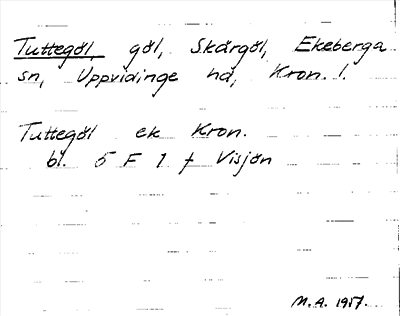 Tuttegöl, göl, Skärgöl, Ekeberga
sn, Uppvidinge hd, Kron. l.
Tuttegöl ek Kron.
bl. 5 F 1 f Visjön
M.A. 1957.